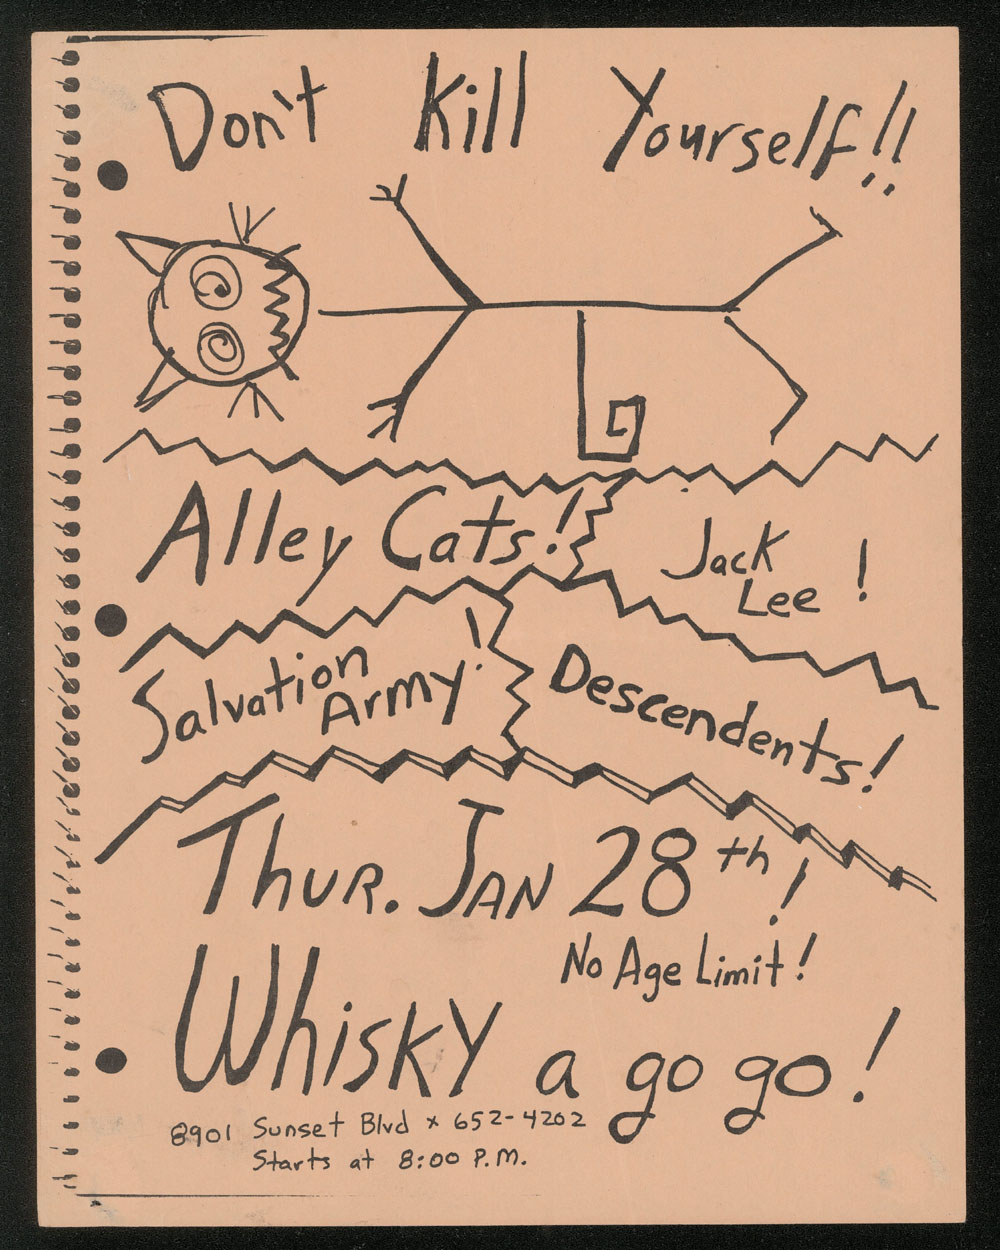 Don't Kill Yourself!!
Alley Cats!
Jack
Lee !
Salvation
Army!
Descendents!
Thur. Jan 28th!
No Age Limit!
Whisky a go go!
8901 Sunset Blvd x 652-4202
Starts at 8:00 P.M.